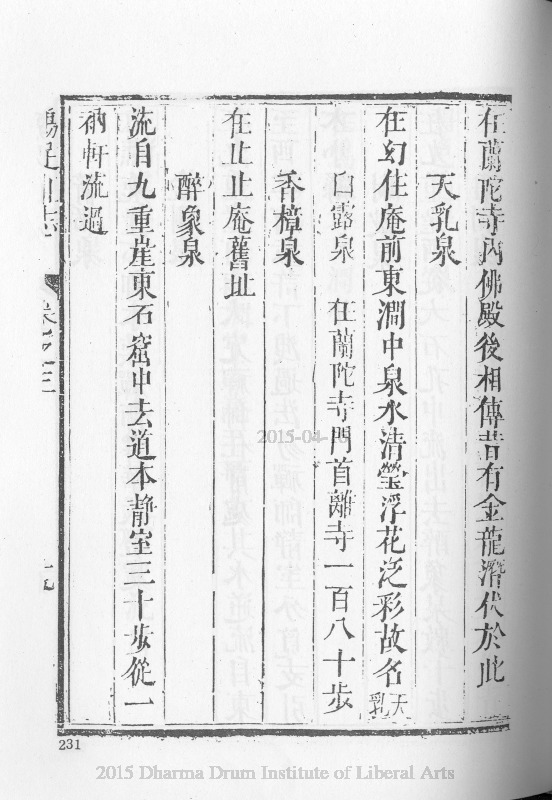 在蘭陀寺內佛殿後相傳昔有金龍潛伏於此
天乳泉
在幻住庵前東澗中泉水清瑩浮花泛彩故名天乳
白露泉 在蘭陀寺門首離寺一百八十步
香樟泉
在止止庵舊址
醉象泉
流自九重崖東石窟中去道本静室三十步從一
衲軒流過
鷄足山志 卷之三
2015-04-16
231
2015 Dharma Drum Institute of Liberal Arts